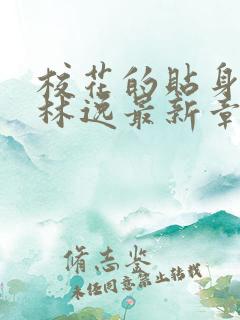 校花的贴身
林逸最新章
脩志鉴
未经同意禁止转载